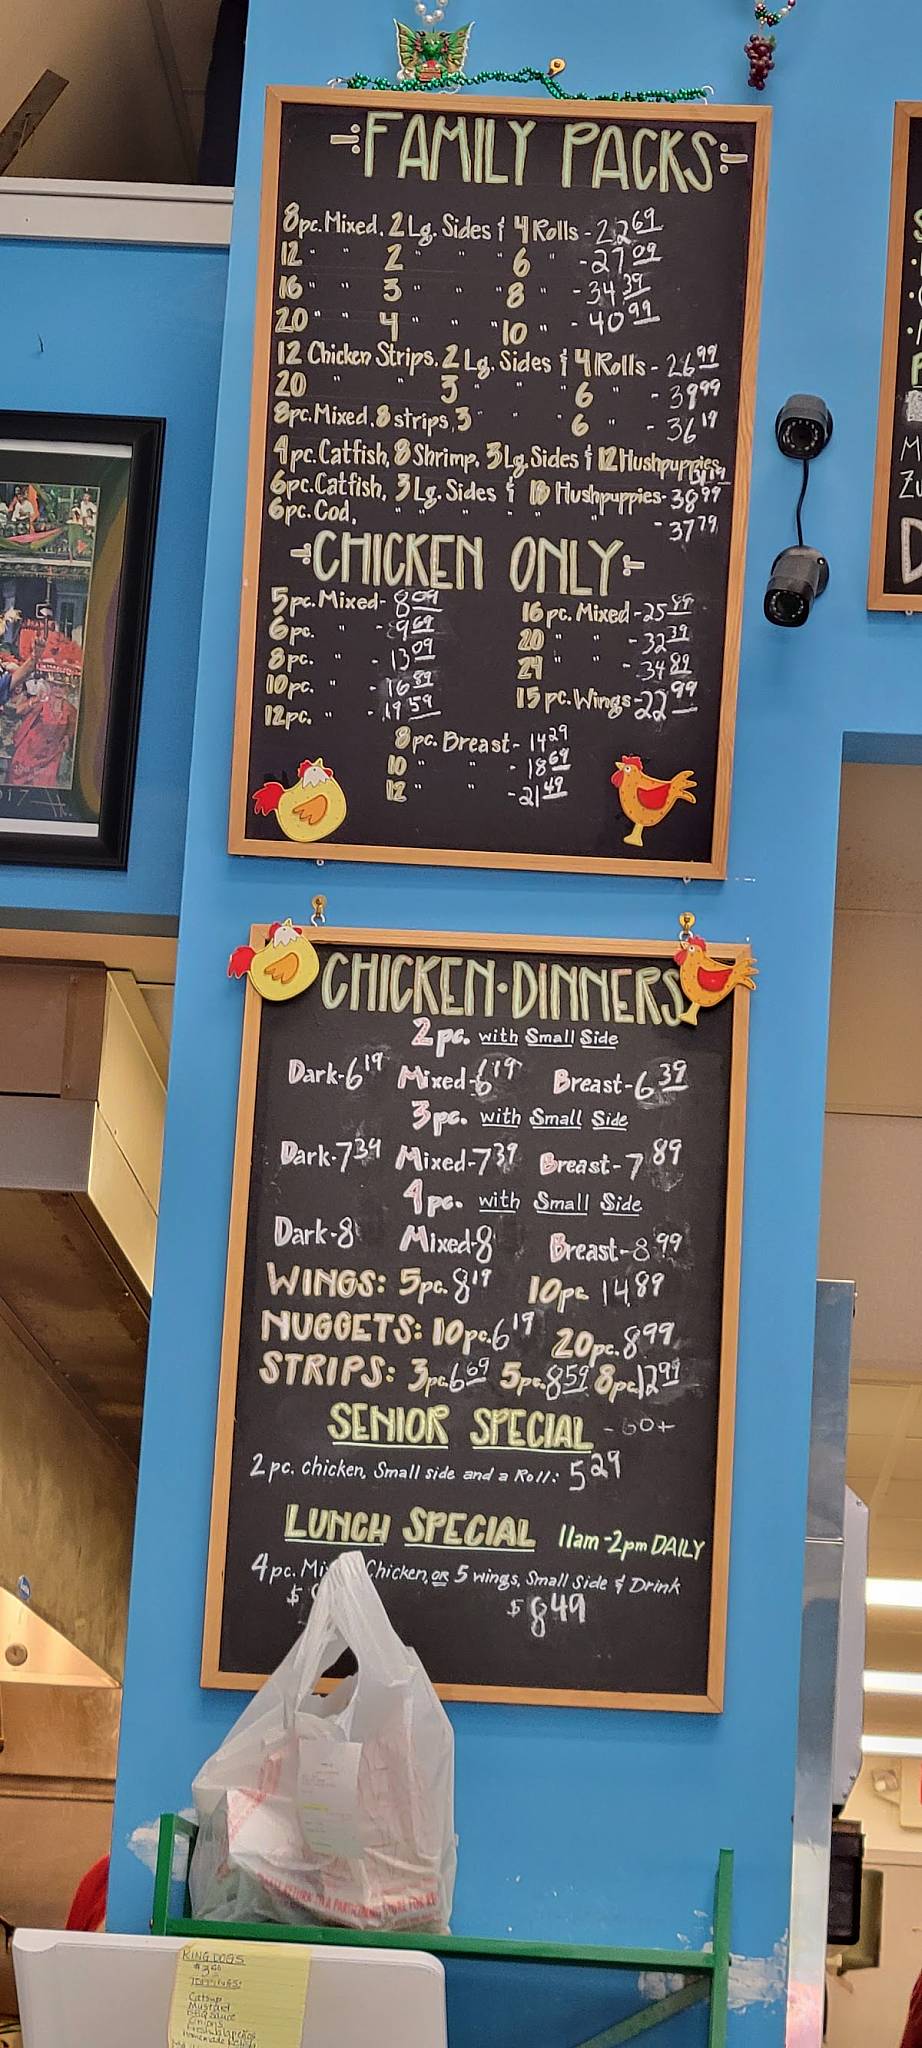 FAMILY PACKS
8pc. Mixed, 2 Lg. Sides & 4 Rolls - 22 69
12 " " 2 " " " 6 " - 27 09
16 " " 3 " " 8 " - 34 39
20 " " 4 " " 10 " - 40 99
12 Chicken Strips, 2 Lg. Sides & 4 Rolls - 26 99
20 " " 3 " " 6 " - 38 99
8pc. Mixed, 8 strips, 3 " " 6 " - 36 19
4pc. Catfish, 8 Shrimp, 3 Lg. Sides & 12 Hushpuppies
6pc. Catfish, 3 Lg. Sides & Hushpuppies - 38 99
6pc. Cod, " " " " " - 37 79
CHICKEN ONLY
5pc. Mixed - 8 09
6pc. " - 9 69
8pc. " - 13 09
10pc. " - 16 89
12pc. " - 19 59
16pc. Mixed - 25 89
20 " " - 32 39
24 " " - 34 89
15pc. Wings - 22 99
8pc. Breast - 14 29
10 " " - 18 69
12 " " - 21 49
CHICKEN · DINNERS
2pc. with Small Side
Dark - 6 19 Mixed - 6 19 Breast - 6 39
3pc. with Small Side
Dark - 7 39 Mixed - 7 39 Breast - 7 89
4pc. with Small Side
Dark - 8 Mixed - 8 Breast - 8 99
WINGS: 5pc. 8 19 10pc 14 89
NUGGETS: 10pc. 6 19 20pc. 8 99
STRIPS: 3pc. 6 69 5pc. 8 59 8pc. 12 99
SENIOR SPECIAL - 60+
2pc. chicken, Small side and a Roll: 5 29
LUNCH SPECIAL 11am - 2pm DAILY
4pc. Chicken, OR 5 wings, Small Side & Drink
$ $ 8 49
RETURN TO A PARTICIPATING STORE FOR
KING DOGS
TOPPINGS:
Catsup
Mustard
BBQ Sauce
Onions
Fresh Jalapeños